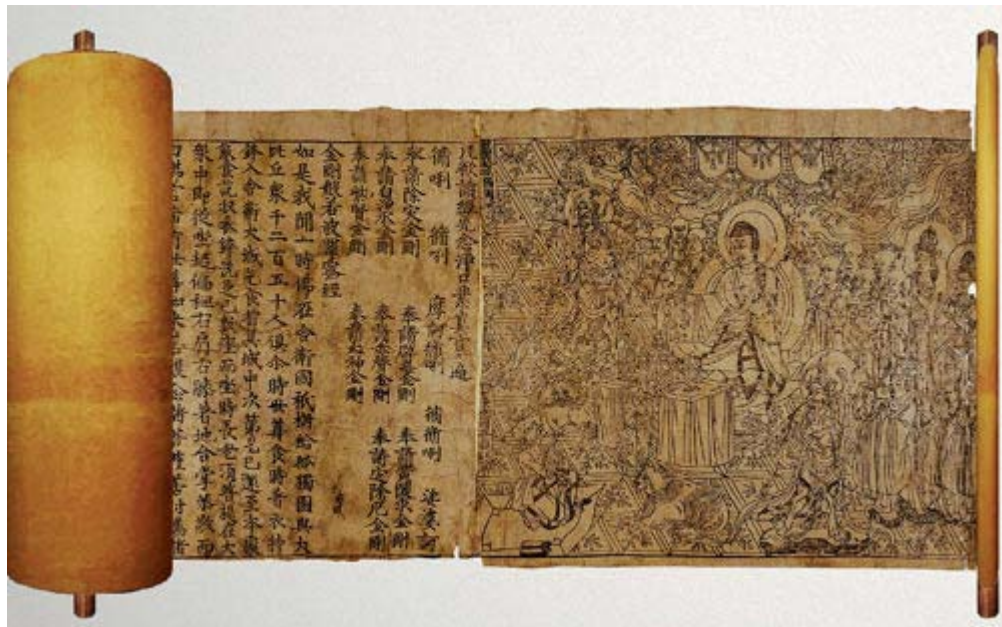 凡欲讀經先念淨口業真言一遍
脩唎 脩唎 摩訶脩唎 脩脩唎 娑婆訶
奉請除災金剛 奉請辟毒金剛 奉請黃隨求金剛
奉請白淨水金剛 奉請赤聲金剛 奉請定除厄金剛
奉請紫賢金剛 奉請大神金剛
金剛般若波羅蜜經
如是我聞一時佛在舍衛國祇樹給孤獨園與大
比丘眾千二百五十人俱尒時世尊食時著衣持
鉢入舍衛大城乞食於其城中次第乞已還至本處
飯食訖收衣鉢洗足已敷座而坐時長老須菩提在大
眾中即從坐起偏袒右肩右膝著地合掌恭敬而
白佛言希有世尊如來善護念諸菩薩善付囑諸